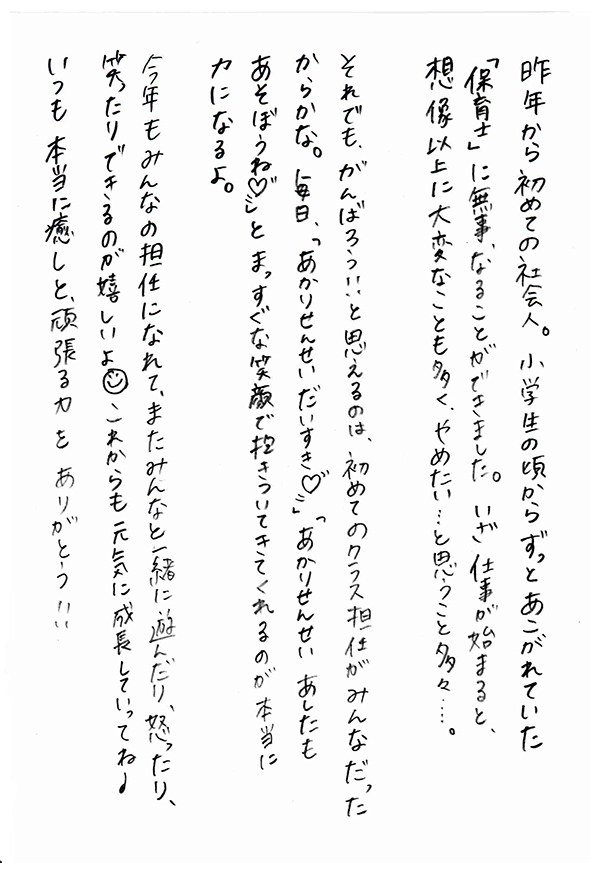 昨年から初めての社会人。小学生の頃からずっとあこがれていた
「保育士」に無事、なることができました。いざ仕事が始まると、
想像以上に大変なことも多く、やめたい…と思うこと多々…。
それでも、がんばろう!!と思えるのは、初めてのクラス担任がみんなだった
からかな。毎日、「あかりせんせいだいすき♡」「あかりせんせい あしたも
あそぼうね♡」と まっすぐな笑顔で抱きついてきてくれるのが本当に
力になるよ。
今年もみんなの担任になれて、またみんなと一緒に遊んだり、怒ったり、
笑ったりできるのが嬉しいよ☺これからも元気に成長していってね♩
いつも本当に癒しと、頑張る力を ありがとう!!